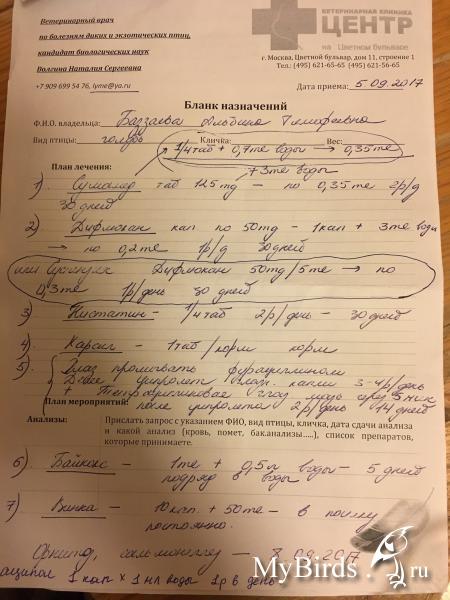 Ветеринарный врач
по болезням диких и экзотических птиц,
кандидат биологических наук
Долгина Наталия Сергеевна
+7 909 699 54 76, lyme@ya.ru
ВЕТЕРИНАРНАЯ КЛИНИКА
ЦЕНТР
на Цветном бульваре
г. Москва, Цветной бульвар, дом 11, строение 1
Тел.: (495) 621-65-65 (495) 621-56-65
Дата приема: 5.09.2017
Бланк назначений
Ф.И.О. владельца: Альбина Тимофеевна
Вид птицы: голубь Кличка: Вес:
1/4 таб + 0,7 мл воды → 0,35 мл
План лечения: + 3 мл воды
1) Сумамед таб 125 mg – по 0,35 мл 2р/д
30 дней
2) Дифлюкан кап по 50 mg – 1 кап + 3 мл воды
→ по 0,2 мл 1р/д 30 дней
или Дифлюкан 50 mg/5 мл → по
0,3 мл 1р/день 30 дней
3) Нистатин – 1/4 таб 2р/день – 30 дней
4) Карсил – 1 таб/ корм
5) Глаз промывать фурацилином
Далее ципролет капли 3-4р/день
+ Тетрациклиновая глаз мазь 5 мин
План мероприятий: после ципролета 2р/день 14 дней
Анализы: Прислать запрос с указанием ФИО, вид птицы, кличка, дата сдачи анализа
и какой анализ (кровь, помет, бак.анализы.....), список препаратов,
которые принимаете.
6) Байкокс – 1 мл + 0,5 л воды – 5 дней
подряд в воды
7) – 10 кап + 50 мл – в поилку
постоянно.
Орнитоз, сальмонеллез – 8.09.2017
1 кап x 1 мл воды 1р в день
MyBirds.ru